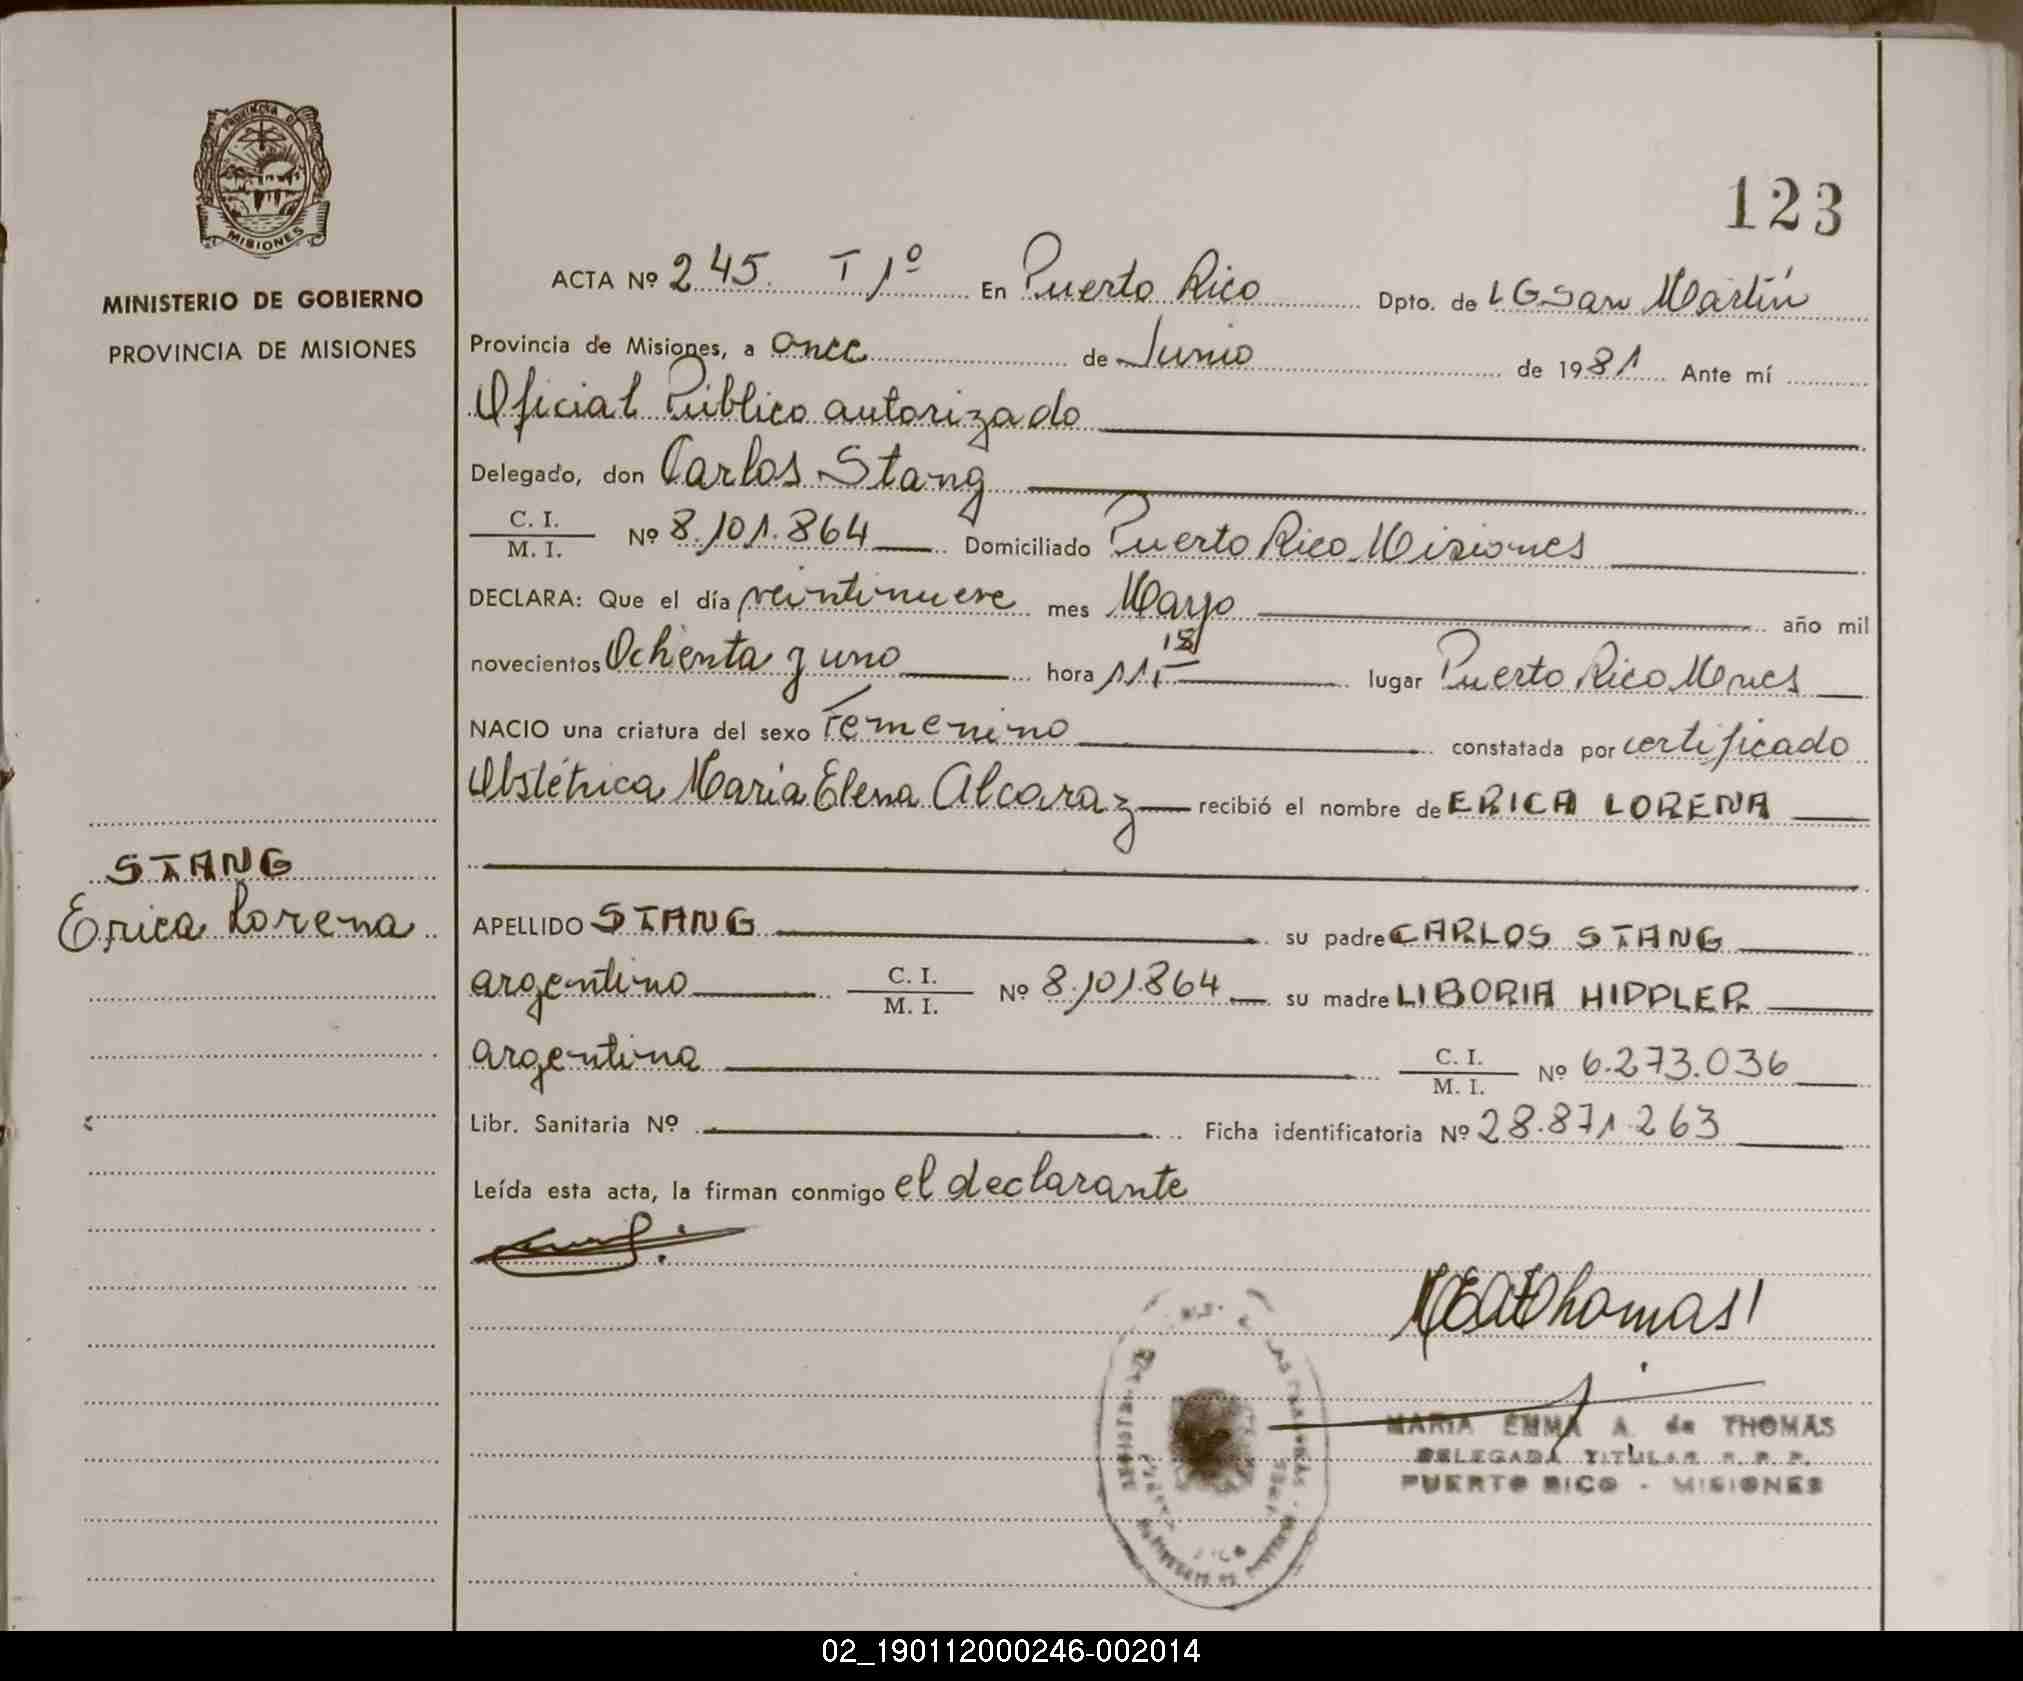 PROVINCIA DE
MISIONES
MINISTERIO DE GOBIERNO
PROVINCIA DE MISIONES
STANG
Erica Lorena
123
ACTA Nº 245. T 1º En Puerto Rico Dpto. de LGSan Martín
Provincia de Misiones, a once de Junio de 1981 Ante mí
Oficial Público autorizado
Delegado, don Carlos Stang
C. I.
M. I. Nº 8.101.864 Domiciliado Puerto Rico Misiones
DECLARA: Que el día veintinueve mes Mayo año mil
novecientos Ochenta y uno hora 11, 15 lugar Puerto Rico Mnes
NACIO una criatura del sexo Femenino constatada por certificado
Obstétrica María Elena Alcaraz recibió el nombre de ERICA LORENA
APELLIDO STANG su padre CARLOS STANG
argentino C. I.
M. I. Nº 8.101.864 su madre LIBORIA HIPPLER
argentina C. I.
M. I. Nº 6.273.036
Libr. Sanitaria Nº Ficha identificatoria Nº 28.871.263
Leída esta acta, la firman conmigo el declarante
MEAThomas
MARIA EMMA A. de THOMAS
DELEGADA TITULAR R. P. P.
PUERTO RICO - MISIONES
02_190112000246-002014